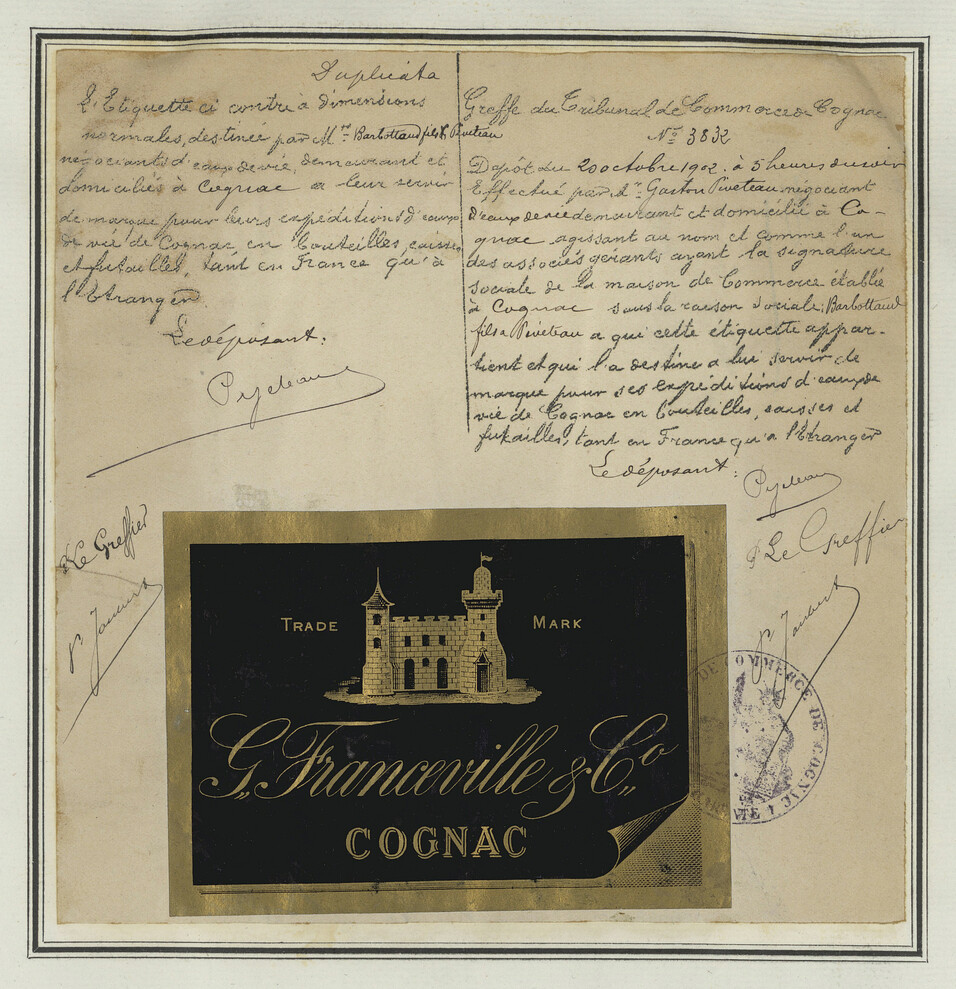 Duplicata
L'Etiquette ci contre à dimensions
normales, destinée par Mrs Barbottaud fils & Piveteau
négociants d'eaux de vie, demeurant et
domiciliés à Cognac a leur servir
de marque pour leurs expéditions d'eaux
de vie de Cognac en bouteilles, caisses
et futailles, tant en France qu'à
l'Etranger
Le déposant:
Piveteau
Le Greffier
Greffe du Tribunal de Commerce de Cognac
No 3832
Dépôt du 20 octobre 1902. à 5 heures du soir
Effectué par Mr Gaston Piveteau négociant
d'eaux de vie demeurant et domicilié à Co-
gnac agissant au nom et comme l'un
des associés gérants ayant la signature
sociale de la maison de Commerce établie
à Cognac sous la raison sociale: Barbottaud
fils & Piveteau a qui cette étiquette appar-
tient et qui l'a destine a lui servir de
marque pour ses expéditions d'eaux de
vie de Cognac en bouteilles, caisses et
futailles, tant en France qu'a l'Etranger
Le déposant:
Piveteau
Le Greffier
TRADE MARK
G. Franceville & Co
COGNAC
DE COMMERCE DE COGNAC